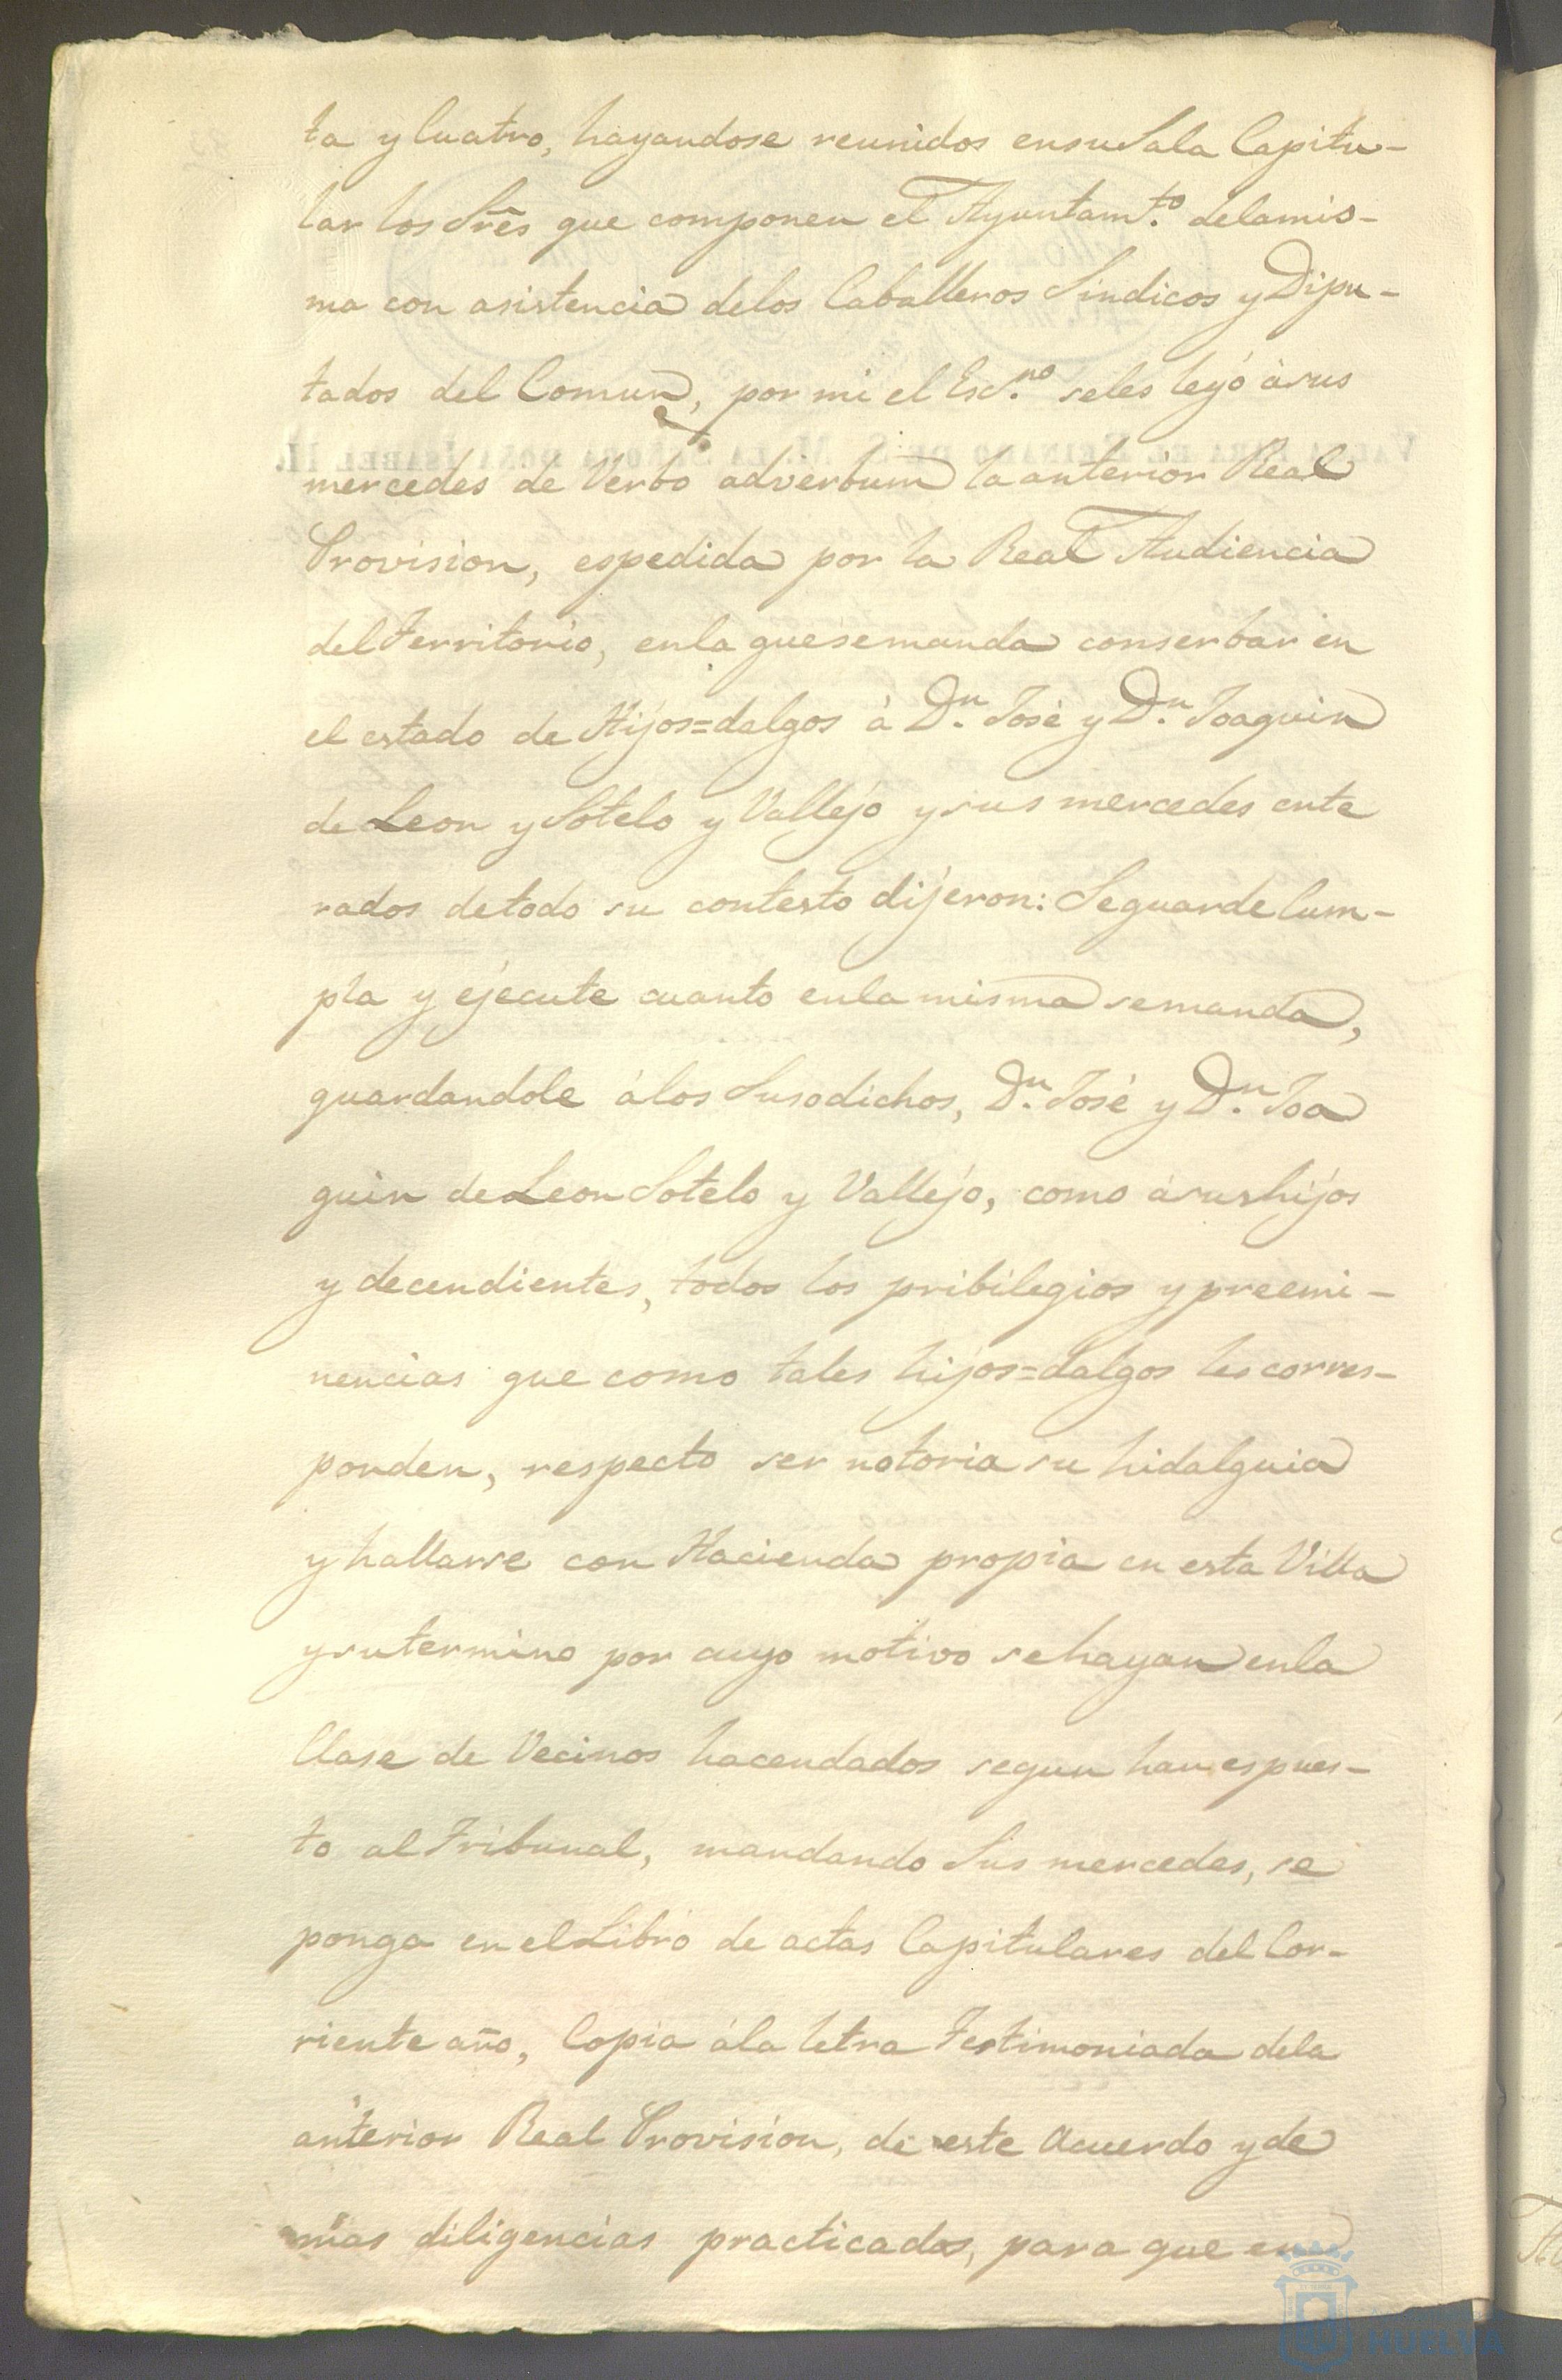 ta y Cuatro, hayandose reunidos ensu Sala Capitu-
lar los Sres que componen el Ayuntamto. delamis-
ma con asistencia delos Caballeros Sindicos y Dipu-
tados del Comun, por mi el Escno. seles leyó àsus
mercedes de Verbo adverbum la anterior Real
Provision, espedida por la Real Audiencia
del Territorio, enla quesemanda conserbar en
el estado de Hijos=dalgos à Dn. José y Dn. Joaquin
de Leon y Sotelo y Vallejo y sus mercedes ente
rados detodo su contesto dijeron: Seguarde Cum-
pla y ejecute cuanto enla misma semanda,
guardandole álos Susodichos, Dn. José y Dn. Joa
quin de Leon Sotelo y Vallejo, como ásus hijos
y decendientes, todos los pribilegios y preemi-
nencias que como tales hijos=dalgos les corres-
ponden, respecto ser notoria su hidalguia
y hallarse con Hacienda propia en esta Villa
y sutermino por cuyo motivo sehayan enla
Clase de Vecinos hacendados segun han espues-
to al Tribunal, mandando Sus mercedes, se
ponga en el Libro de actas Capitulares del Cor-
riente año, Copia ála letra Testimoniada dela
anterior Real Provision, de este Acuerdo y de
mas diligencias practicadas, para que en
VALGA PARA EL REINADO DE S. M. LA SEÑORA DOÑA ISABEL II.
HUELVA